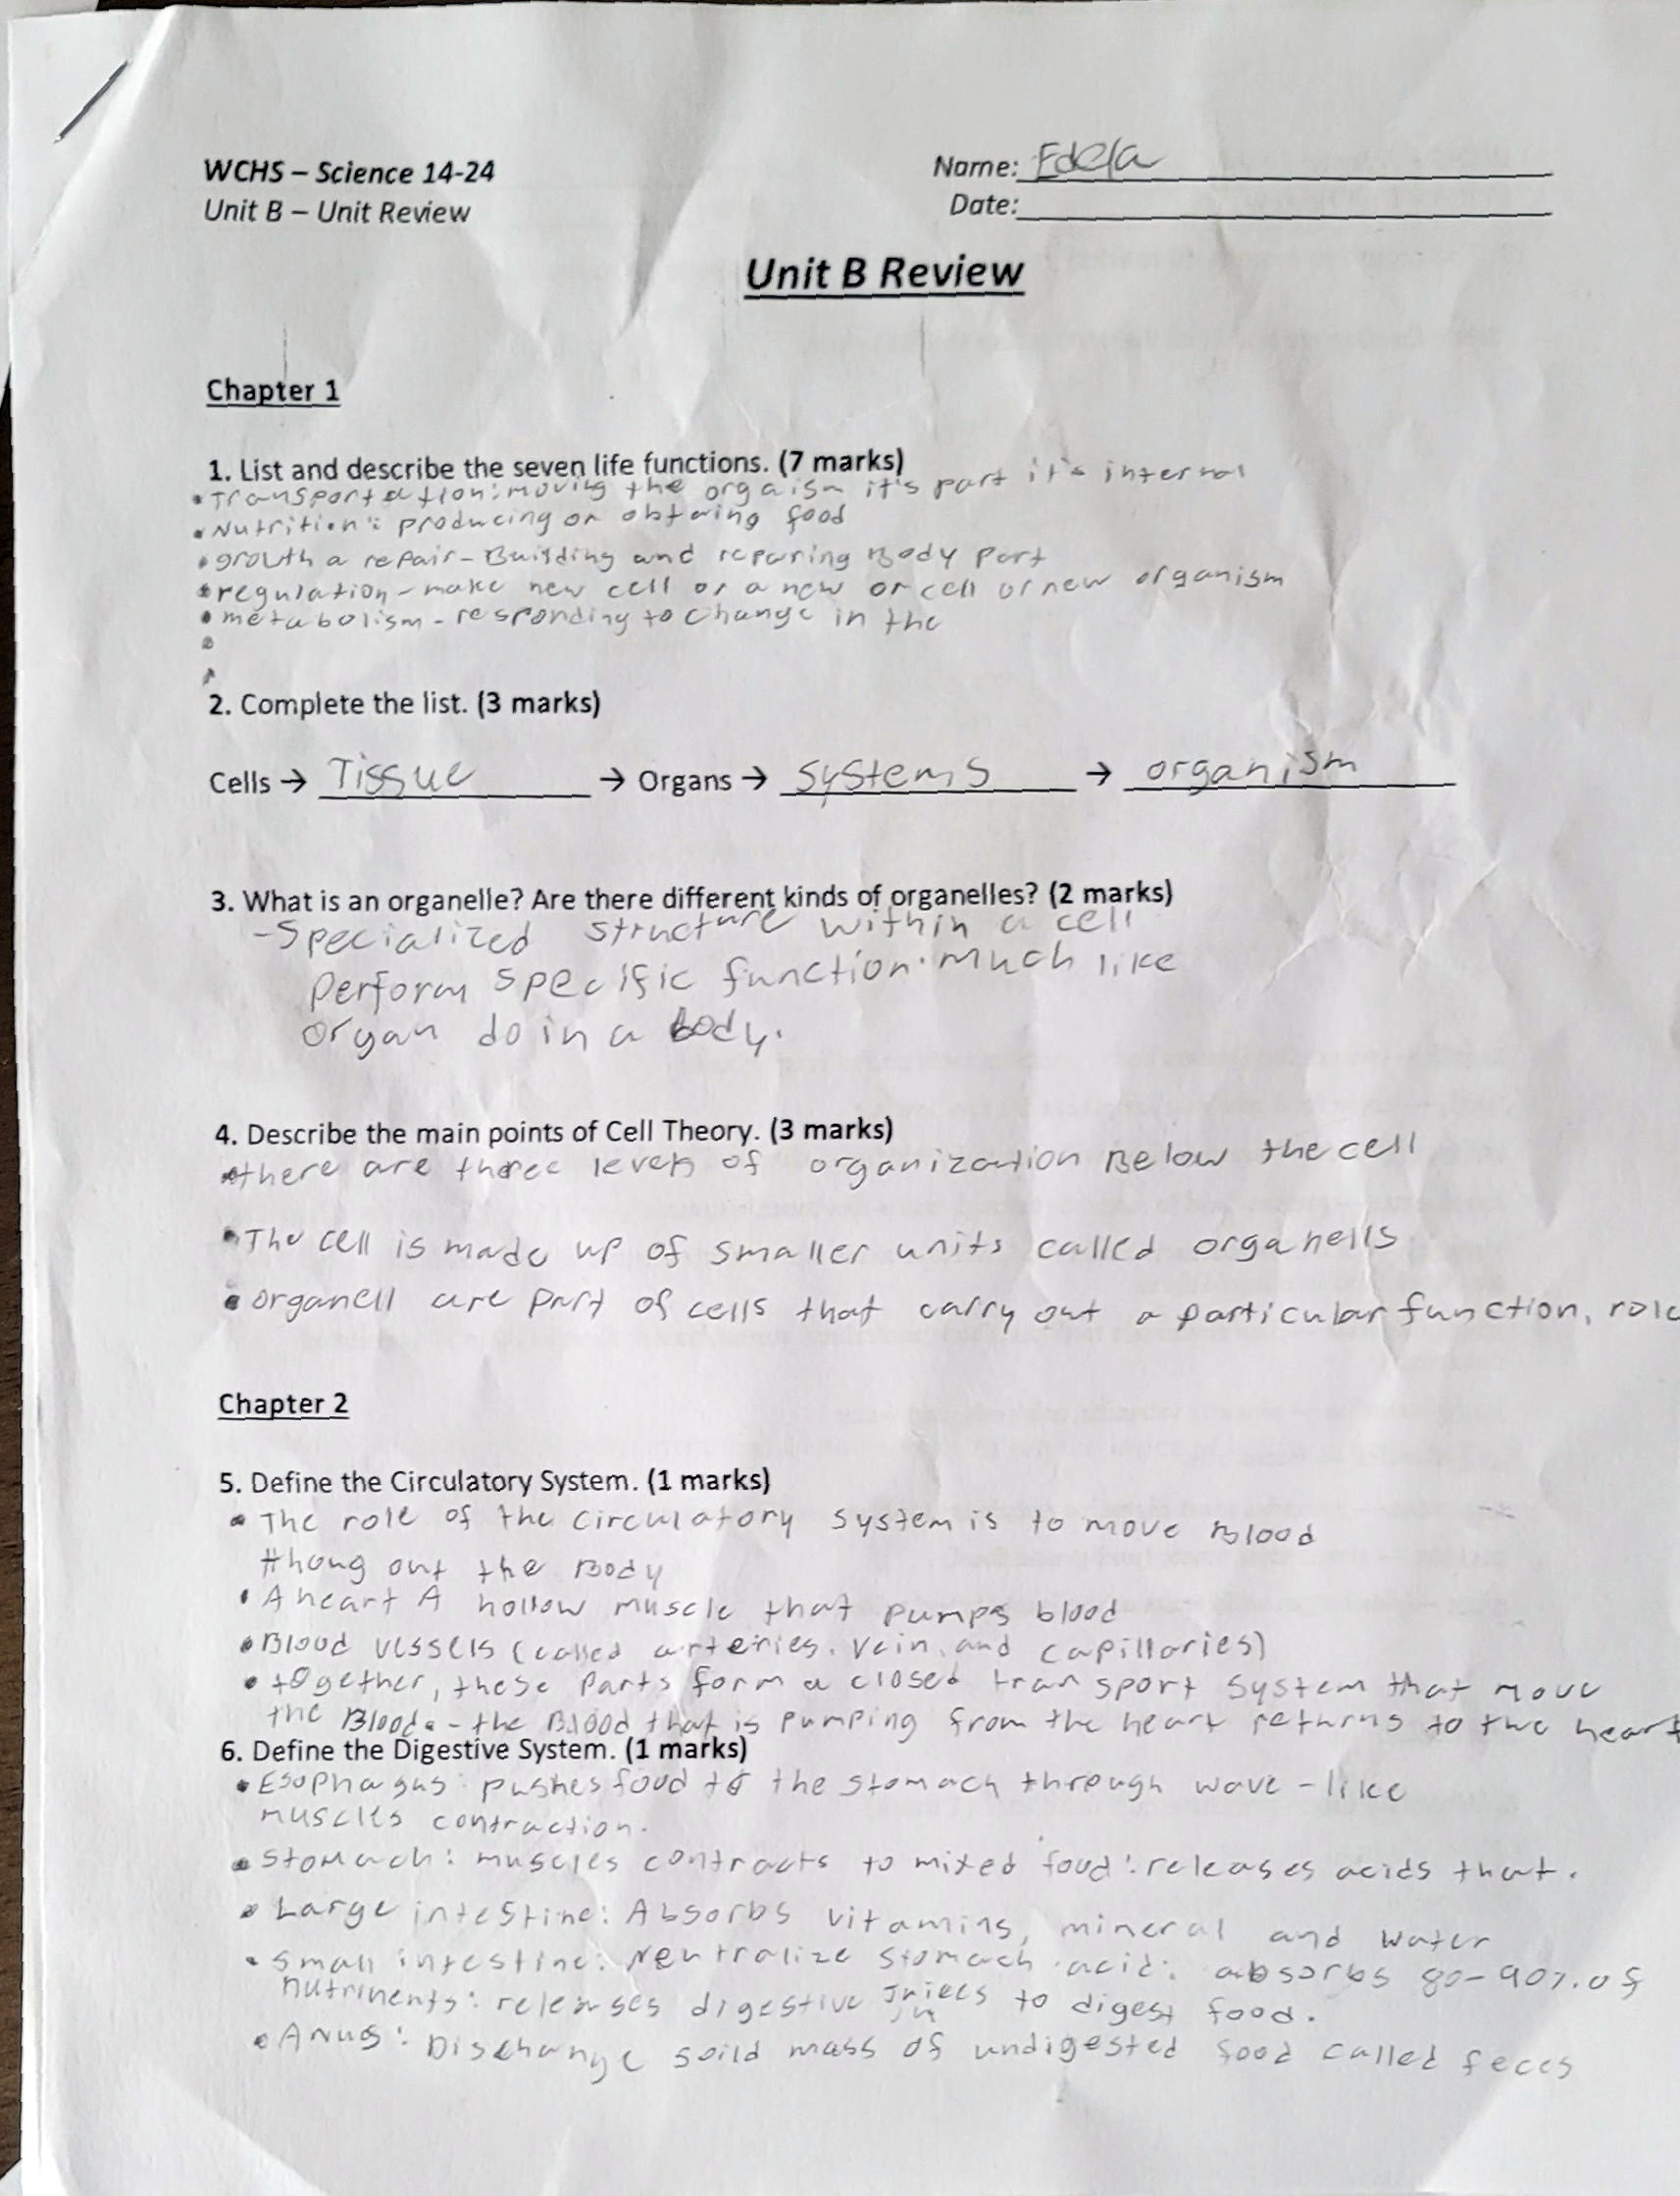 WCHS – Science 14-24
Name: Edela
Unit B – Unit Review
Date:
Unit B Review
Chapter 1
1. List and describe the seven life functions. (7 marks)
• Transportation: moving the orgaism it's part it's internal
• Nutrition: producing or obtaring food
• growth a repair - Building and reparing Body part
• regulation - make new cell or a new or cell or new organism
• metabolism - responding to change in the
2. Complete the list. (3 marks)
Cells → Tissue → Organs → Systems → organism
3. What is an organelle? Are there different kinds of organelles? (2 marks)
- Specialized structure within a cell
Perform specific function. Much like
organ do in a body.
4. Describe the main points of Cell Theory. (3 marks)
• there are three levels of organization Below the cell
• The cell is made up of smaller units called organells
• organell are part of cells that carry out a particular function, role
Chapter 2
5. Define the Circulatory System. (1 marks)
• The role of the circulatory system is to move Blood
thoug out the Body
• A heart A hollow muscle that pumps blood
• Blood vessels (called arteries, vein, and capillaries)
• together, these Parts form a closed transport system that move
the Blood. - the Blood that is pumping from the heart returns to the heart
6. Define the Digestive System. (1 marks)
• Esophagus: pushes food to the stomach through wave - like
muscles contraction.
• Stomach: muscles contracts to mixed food: releases acids that.
• Large intestine: Absorbs vitamins, mineral and water
• Small intestine: Neutralize stomach acid: absorbs 80-90% of
nutrinents: releases digestive to digest food.
• Anus: Dischange soild mass of undigested food called feces